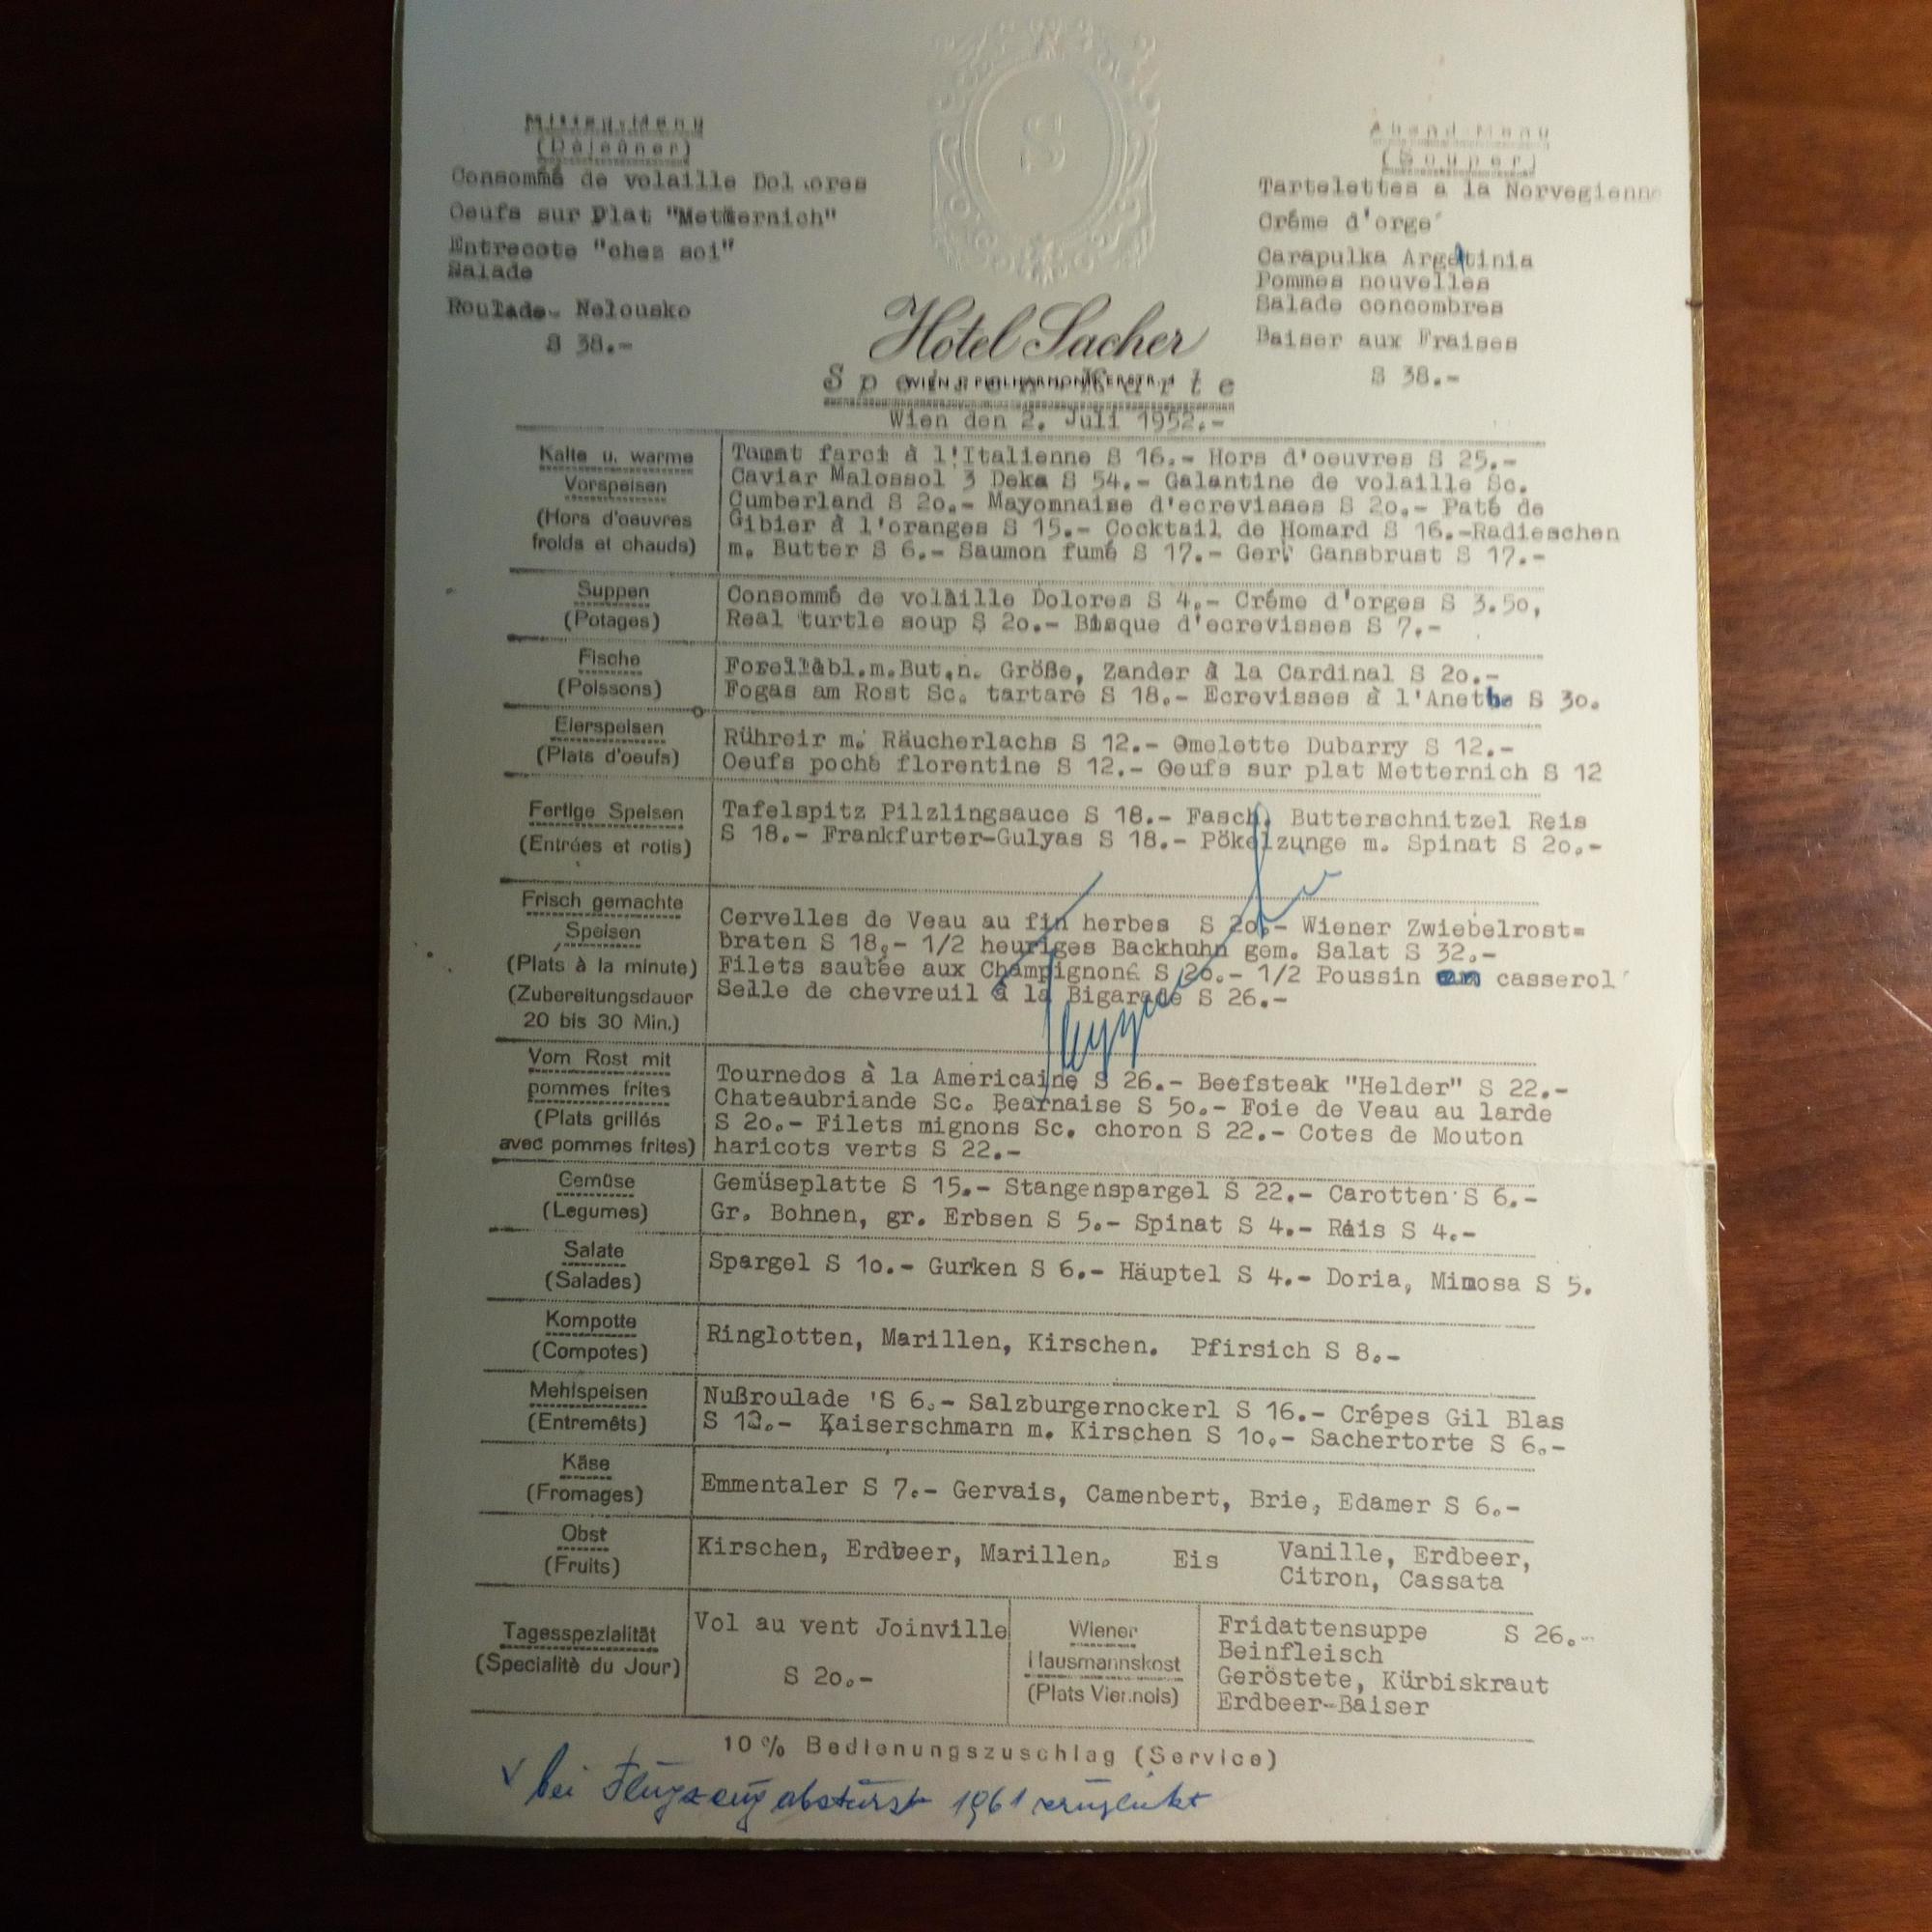 Mittag-Menu
(Dejeûner)
Consommé de volaille Dolores
Oeufs sur Plat "Metternich"
Entrecote "ches soi"
Salade
Roulade- Nelousko
S 38.-
S
Abend-Menu
(Souper)
Tartelettes a la Norvegienne
Créme d'orge
Carapulka Argetinia
Pommes nouvelles
Salade concombres
Baiser aux Fraises
S 38.-
Hotel Sacher
WIEN I. PHILHARMONIKERSTR. 4
Speisen-Karte
Wien den 2. Juli 1952.-
Kalte u. warme
Vorspeisen
(Hors d'oeuvres
froids et chauds)
Tomat farci à l'Italienne S 16.- Hors d'oeuvres S 25.-
Caviar Malossol 3 Deka S 54.- Galantine de volaille Sc.
Cumberland S 20.- Mayomnaise d'ecrevisses S 20.- Paté de
Gibier à l'oranges S 15.- Cocktail de Homard S 16.-Radieschen
m. Butter S 6.- Saumon fumé S 17.- Ger. Gansbrust S 17.-
Suppen
(Potages)
Consommé de volaille Dolores S 4.- Créme d'orges S 3.50,
Real turtle soup S 20.- Bisque d'ecrevisses S 7.-
Fische
(Poissons)
Forellâbl.m.But.n. Größe, Zander à la Cardinal S 20.-
Fogas am Rost Sc. tartare S 18.- Ecrevisses à l'Anethe S 30.
Eierspeisen
(Plats d'oeufs)
Rühreir m. Räucherlachs S 12.- Omelette Dubarry S 12.-
Oeufs poché florentine S 12.- Oeufs sur plat Metternich S 12
Fertige Speisen
(Entrées et rotis)
Tafelspitz Pilzlingsauce S 18.- Fasch. Butterschnitzel Reis
S 18.- Frankfurter-Gulyas S 18.- Pökelzunge m. Spinat S 20.-
Frisch gemachte
Speisen
(Plats à la minute)
(Zubereitungsdauer
20 bis 30 Min.)
Cervelles de Veau au fin herbes S 20.- Wiener Zwiebelrost=
braten S 18,- 1/2 heuriges Backhuhn gem. Salat S 32.-
Filets sautée aux Champignoné S 26.- 1/2 Poussin en casserol
Selle de chevreuil à la Bigarade S 26.-
Vom Rost mit
pommes frites
(Plats grillés
avec pommes frites)
Tournedos à la Americaine S 26.- Beefsteak "Helder" S 22.-
Chateaubriande Sc. Bearnaise S 50.- Foie de Veau au larde
S 20.- Filets mignons Sc. choron S 22.- Cotes de Mouton
haricots verts S 22.-
Gemüse
(Legumes)
Gemüseplatte S 15.- Stangenspargel S 22.- Carotten S 6.-
Gr. Bohnen, gr. Erbsen S 5.- Spinat S 4.- Reis S 4.-
Salate
(Salades)
Spargel S 10.- Gurken S 6.- Häuptel S 4.- Doria, Mimosa S 5.
Kompotte
(Compotes)
Ringlotten, Marillen, Kirschen. Pfirsich S 8.-
Mehlspeisen
(Entremêts)
Nußroulade S 6.- Salzburgernockerl S 16.- Crépes Gil Blas
S 12.- Kaiserschmarn m. Kirschen S 10.- Sachertorte S 6.-
Käse
(Fromages)
Emmentaler S 7.- Gervais, Camenbert, Brie, Edamer S 6.-
Obst
(Fruits)
Kirschen, Erdbeer, Marillen.
Eis
Vanille, Erdbeer,
Citron, Cassata
Tagesspezialität
(Specialitè du Jour)
Vol au vent Joinville
S 20.-
Wiener
Hausmannskost
(Plats Viennois)
Fridattensuppe S 26.-
Beinfleisch
Geröstete, Kürbiskraut
Erdbeer-Baiser
10% Bedienungszuschlag (Service)
bei Flugzeugabsturz 1961 verunglückt